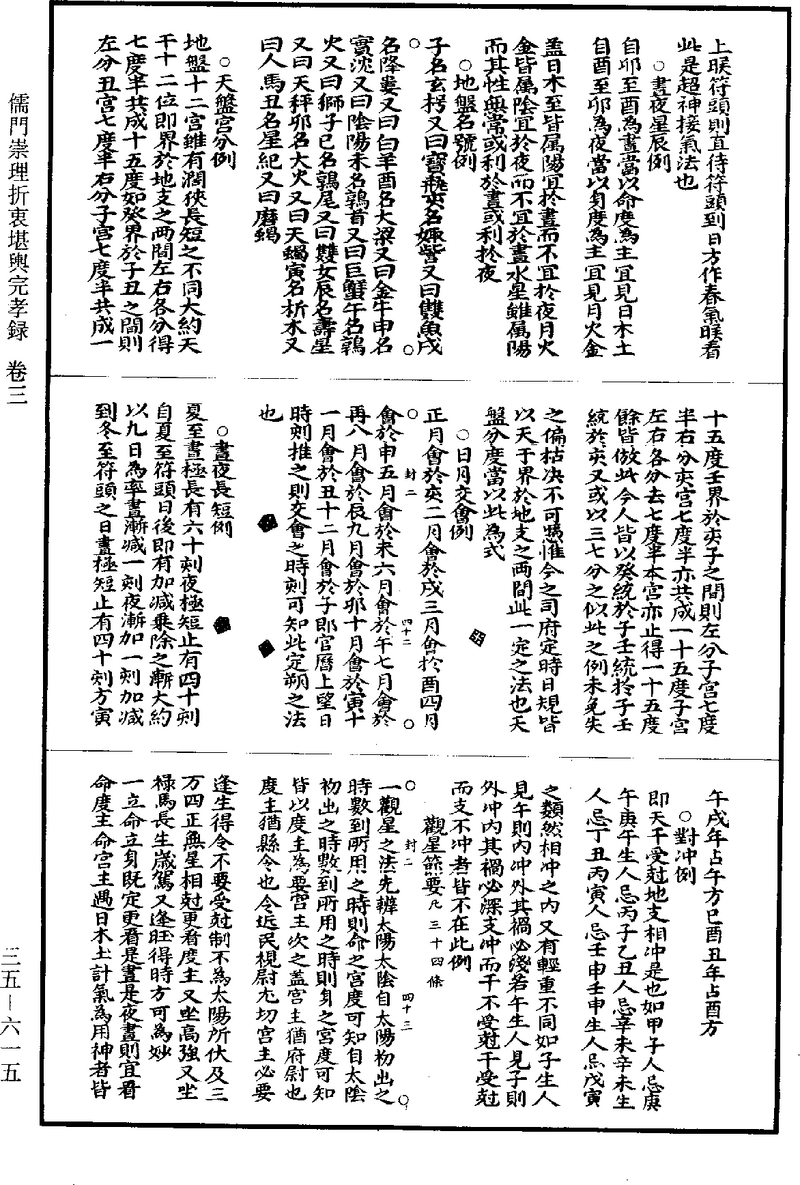 上朕符頭則直待符頭到日方作春氣睽看
此是超神接氣法也
○晝夜星辰例
自卯至酉為晝當以命度為主宜見日木土
自酉至卯為夜當以身度為主宜見月火金
盖日木至皆屬陽宜於晝而不宜於夜月火
金皆屬陰宜於夜而不宜於晝水星雖屬陽
而其性無常或利於晝或利於夜
○地盤名號例
子名玄枵又曰寶瓶亥名娵訾又曰雙魚戌
名降婁又曰白羊酉名大梁又曰金牛申名
實沈又曰陰陽未名鶉首又曰巨蟹午名鶉
火又曰獅子巳名鶉尾又曰雙女辰名壽星
又曰天秤卯名大火又曰天蝎寅名析木又
曰人馬丑名星紀又曰磨蝎
○天盤宮分例
地盤十二宮雖有濶狹長短之不同大約天
干十二位即界於地支之兩間左右各分得
七度半共成十五度如癸界於子丑之間則
左分丑宮七度半右分子宮七度半共成一
十五度壬界於亥子之間則左分子宮七度
半右分亥宮七度半亦共成一十五度子宮
左右各分去七度半本宮亦止得一十五度
餘皆倣此今人皆以癸統於子壬統於子壬
統於亥又或以三七分之似此之例未免失
之偏枯决不可憑惟今之司府定時日規皆
以天干界於地支之兩間此一定之法也天
盤分度當以此為式
○日月交會例
正月會於亥二月會於戌三月會於酉四月
會於申五月會於未六月會於午七月會於
再八月會於辰九月會於卯十月會於寅十
一月會於丑十二月會於子即官曆上望日
時刻推之則交會之時刻可知此定朔之法
也
○晝夜長短例
夏至晝極長有六十刻夜極短止有四十刻
自夏至符頭日後即有加減乗除之漸大約
以九日為率晝漸減一刻夜漸加一刻加減
到冬至符頭之日晝極短止有四十刻方寅
午戌年占午方巳酉丑年占酉方
○對冲例
即天干受尅地支相冲是也如甲子人忌庚
午庚午生人忌丙子乙丑人忌辛未辛未生
人忌丁丑丙寅人忌壬申壬申生人忌戊寅
之類然相冲之内又有輕重不同如子生人
見午則内冲外其禍必淺若午生人見子則
外冲内其禍必深支冲而干不受尅干受尅
而支不冲者皆不在此例
觀星節要凡三十四條
一觀星之法先辨太陽太陰自太陽初出之
時數到所用之時則命之宮度可知自太陰
初出之時數到所用之時則身之宮度可知
皆以度主為要宮主次之盖宮主猶府尉也
度主猶縣令也令近民視尉尤切宮主必要
逢生得令不要受尅制不為太陽所伏及三
方四正無星相尅更看度主又坐高強又坐
祿馬長生歲駕又逢旺得時方可為妙
一立命立身既定更看是晝是夜晝則宜看
命度主命宮主遇日木土計氣為用神者皆
封二
四十二
封二
四十三
儒門崇理折衷堪輿完孝録 卷三
三五—六一五